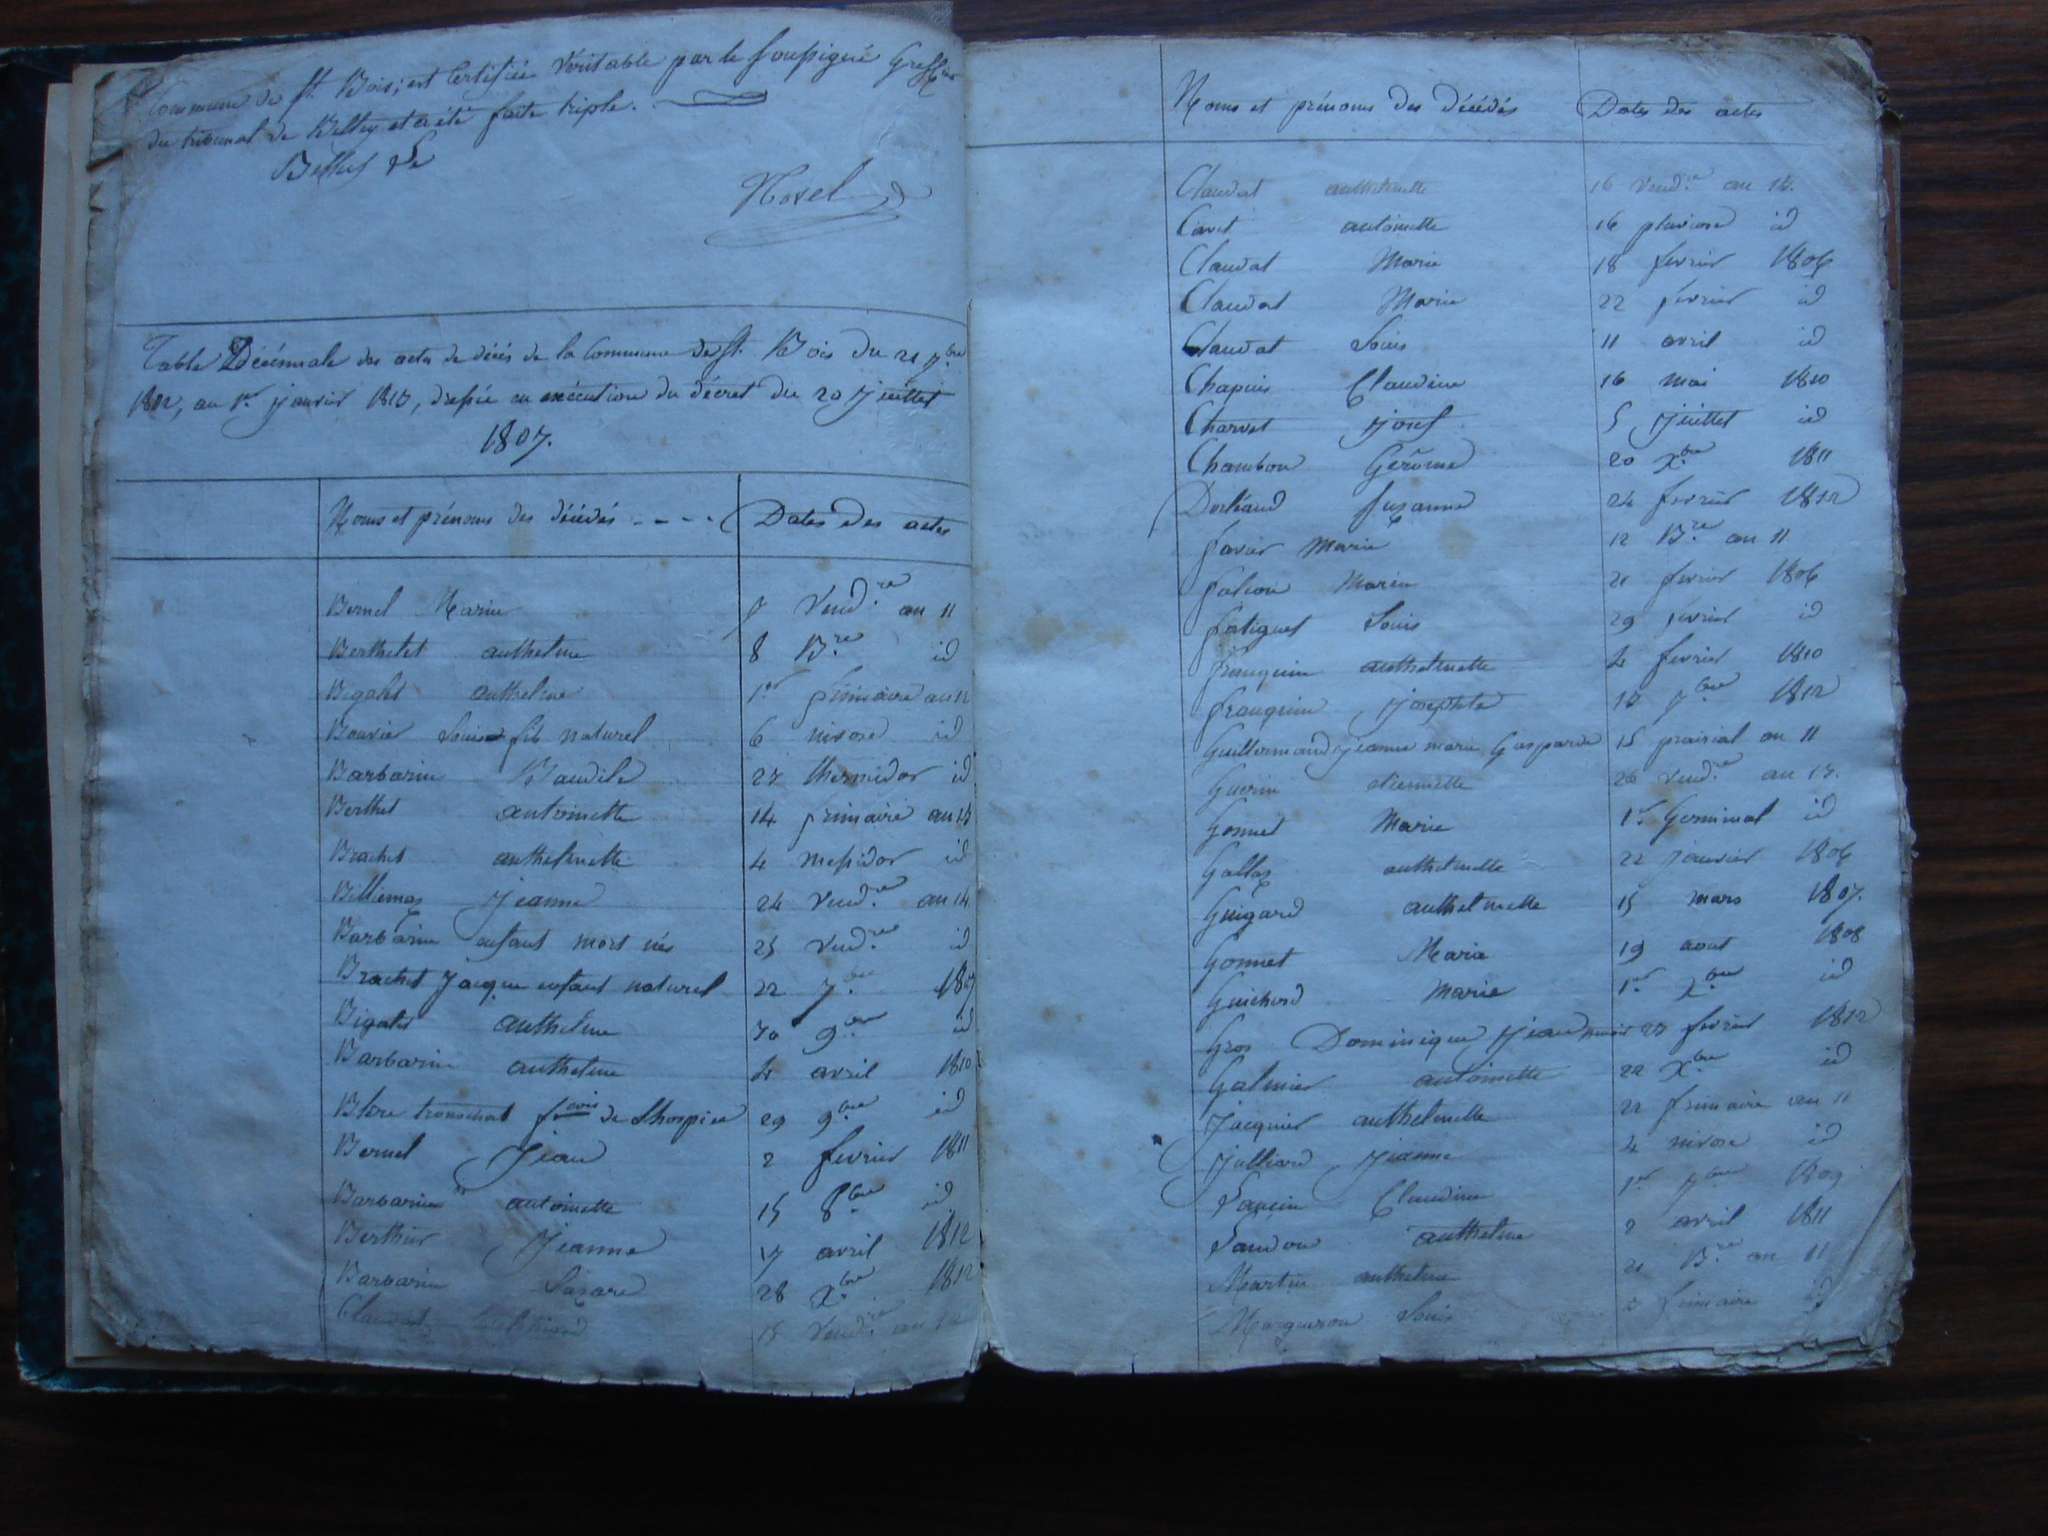 Commune de St. Bois, est Certifiée Véritable par le soussigné Greffier
du tribunal de Belley et a été faite triple.
Belley Le
Table Décennale des actes de décés de la Commune de St. Bois du 21 7.bre
1802, au 1er janvier 1813, dressée en exécution du décret du 20 juillet
1807.
Noms et prénoms des décédés - - - - Dates des actes
Bernel Marie 7 Vend.re an 11
Berthelet anthelme 8 B.re id
Bigolet anthelme 1er frimaire an 12
Bouvier Louis fils naturel 6 nivose id
Barbarin Claudile 27 thermidor id
Berthet antoinette 14 frimaire an 13
Brachet anthelmette 4 messidor id
Billiemaz Jeanne 24 Vend.re an 14
Barbarin enfant mort nés 25 Vend.re id
Brachet Jacque enfant naturel 22 7.bre 1807
Bigolet anthelme 30 9.bre id
Barbarin anthelme 4 avril 1810
Blere fcois de Lhospice 29 9.bre id
Bernel Jean 2 fevrier 1811
Barbarin antoinette 15 8.bre id
Berthier Jeanne 17 avril 1812
Barbarin Lazare 28 X.bre 1812
Claudat 15 Vend.re an
Noms et prénoms des décédés Dates des actes
Claudat anthelmette 16 Vend.re an 13.
Cavet antoinette 16 pluviose id
Claudat Marie 18 fevrier 1806
Claudat Marie 22 fevrier id
Claudat Louis 11 avril id
Chapuis Claudine 16 mai 1810
Charvet Josef 5 Juillet id
Chambon Gerôme 20 X.bre 1811
Dorléand suzanne 24 fevrier 1812
favier Marie 12 B.re an 11
falcon Marie 21 fevrier 1806
fatiguet Louis 29 fevrier id
franquin anthelmette 4 fevrier 1810
franquin Josephte 13 7.bre 1812
Guillermand jeanne marie Gasparde 15 prairial an 11
Guerin etiennette 26 Vend.re an 13.
Gonnet Marie 1er Germinal id
Gallaz anthelmette 22 janvier 1806
Guigard anthelmette 15 mars 1807.
Gonnet Marie 19 aout 1808
Guichard Marie 1er X.bre id
Gros Dominique Jean 27 fevrier 1812
Galmier antoinette 22 X.bre id
Jacquier anthelmette 22 frimaire an 11
Julliard Jeanne 4 nivose id
Lancin Claudine 1er 7.bre 1809
Landon anthelme 2 avril 1811
Martin anthelme 21 B.re an 11
Marguron Louis frimaire id